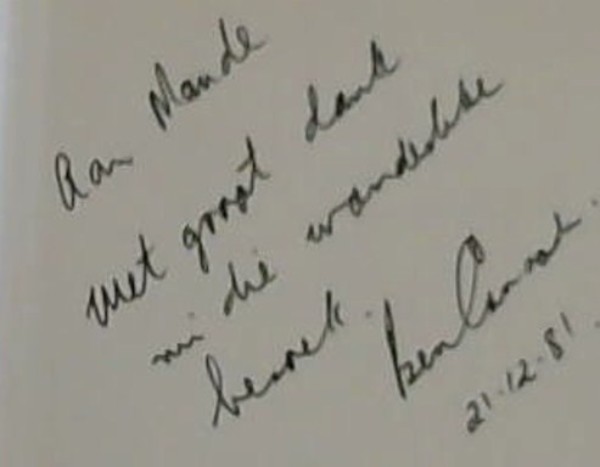 Aan Maude
met groot dank
vir die wonderlike
besoek.
Ken
21.12.81.